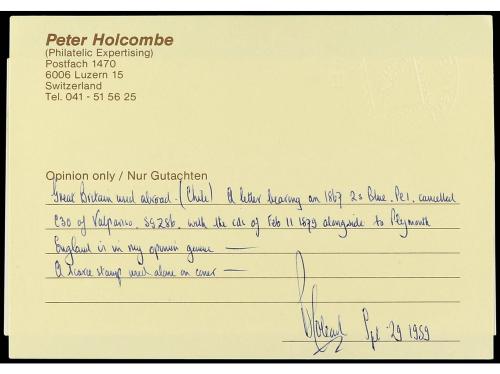 Peter Holcombe
(Philatelic Expertising)
Postfach 1470
6006 Luzern 15
Switzerland
Tel. 041 - 51 56 25
Opinion only / Nur Gutachten
Great Britain used abroad. (Chile) A letter bearing an 1867 2s Blue. Pl 1, cancelled
C30 of Valparaiso, SG Z86, with the cds of Feb 11 1879 alongside to Plymouth
England is in my opinion genuine —
A scarce stamp used alone on cover —
29 1989